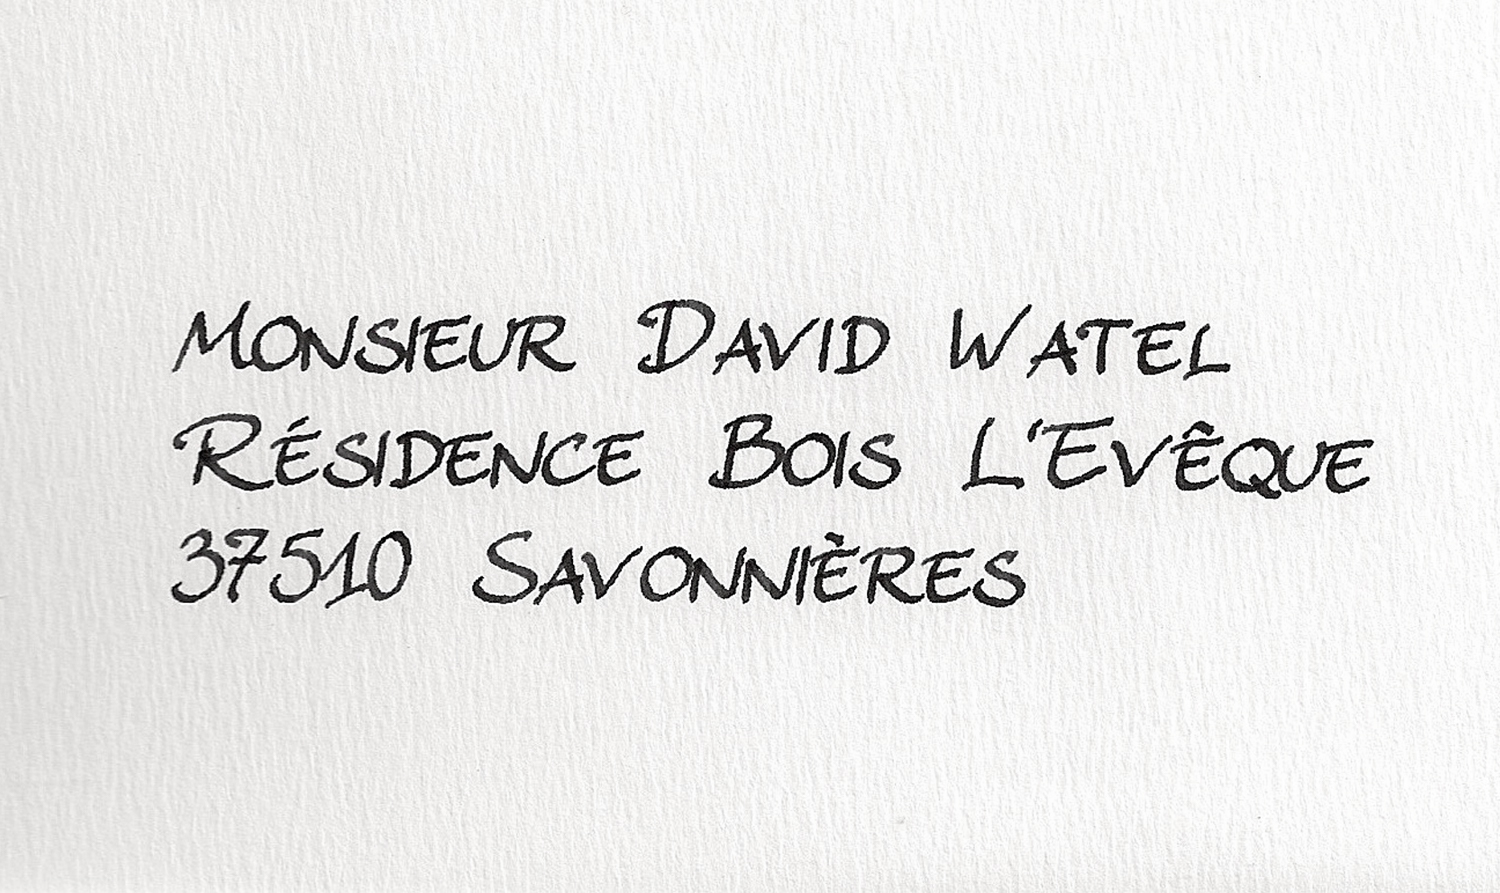 Monsieur David Watel
Résidence Bois L'Evêque
37510 Savonnières